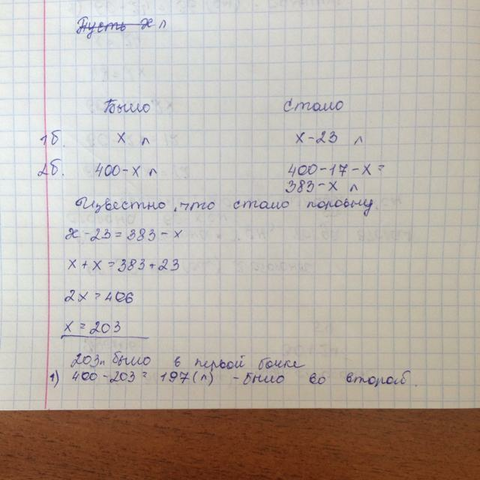 Пусть x л
Было Стало
1б. x л x-23 л
2б. 400-x л 400-17-x=
383-x л
Известно, что стало поровну
x-23=383-x
x+x=383+23
2x=406
x=203
203л было в первой бочке
1) 400-203=197(л) -было во второй.